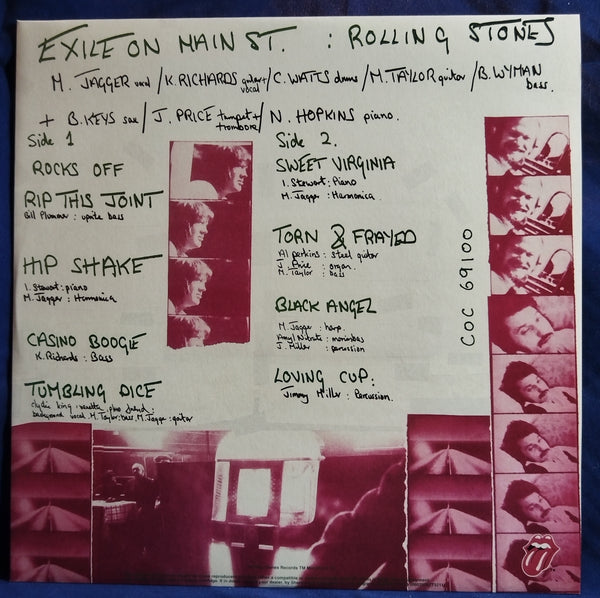 EXILE ON MAIN ST. : ROLLING STONES
M. JAGGER vocal / K. RICHARDS guitar + vocal / C. WATTS drums / M. TAYLOR guitar / B. WYMAN bass.
+ B. KEYS sax / J. PRICE trumpet + trombone / N. HOPKINS piano.
Side 1
ROCKS OFF
RIP THIS JOINT
Bill Plummer : uprite bass
HIP SHAKE
I. Stewart : piano
M. Jagger : Harmonica
CASINO BOOGIE
K. Richards : Bass
TUMBLING DICE
clydie king . vanetta
background vocal. M. Taylor : bass. M. Jagger : guitar
Side 2.
SWEET VIRGINIA
I. Stewart : Piano
M. Jagger : Harmonica.
TORN & FRAYED
Al perkins : steel guitar
J. Price : organ.
M. Taylor : bass
BLACK ANGEL
M. Jagger : harp.
Amyl Nitrate : marimbas
J. Miller : percussion
LOVING CUP :
Jimmy Miller : Percussion.
COC 69100